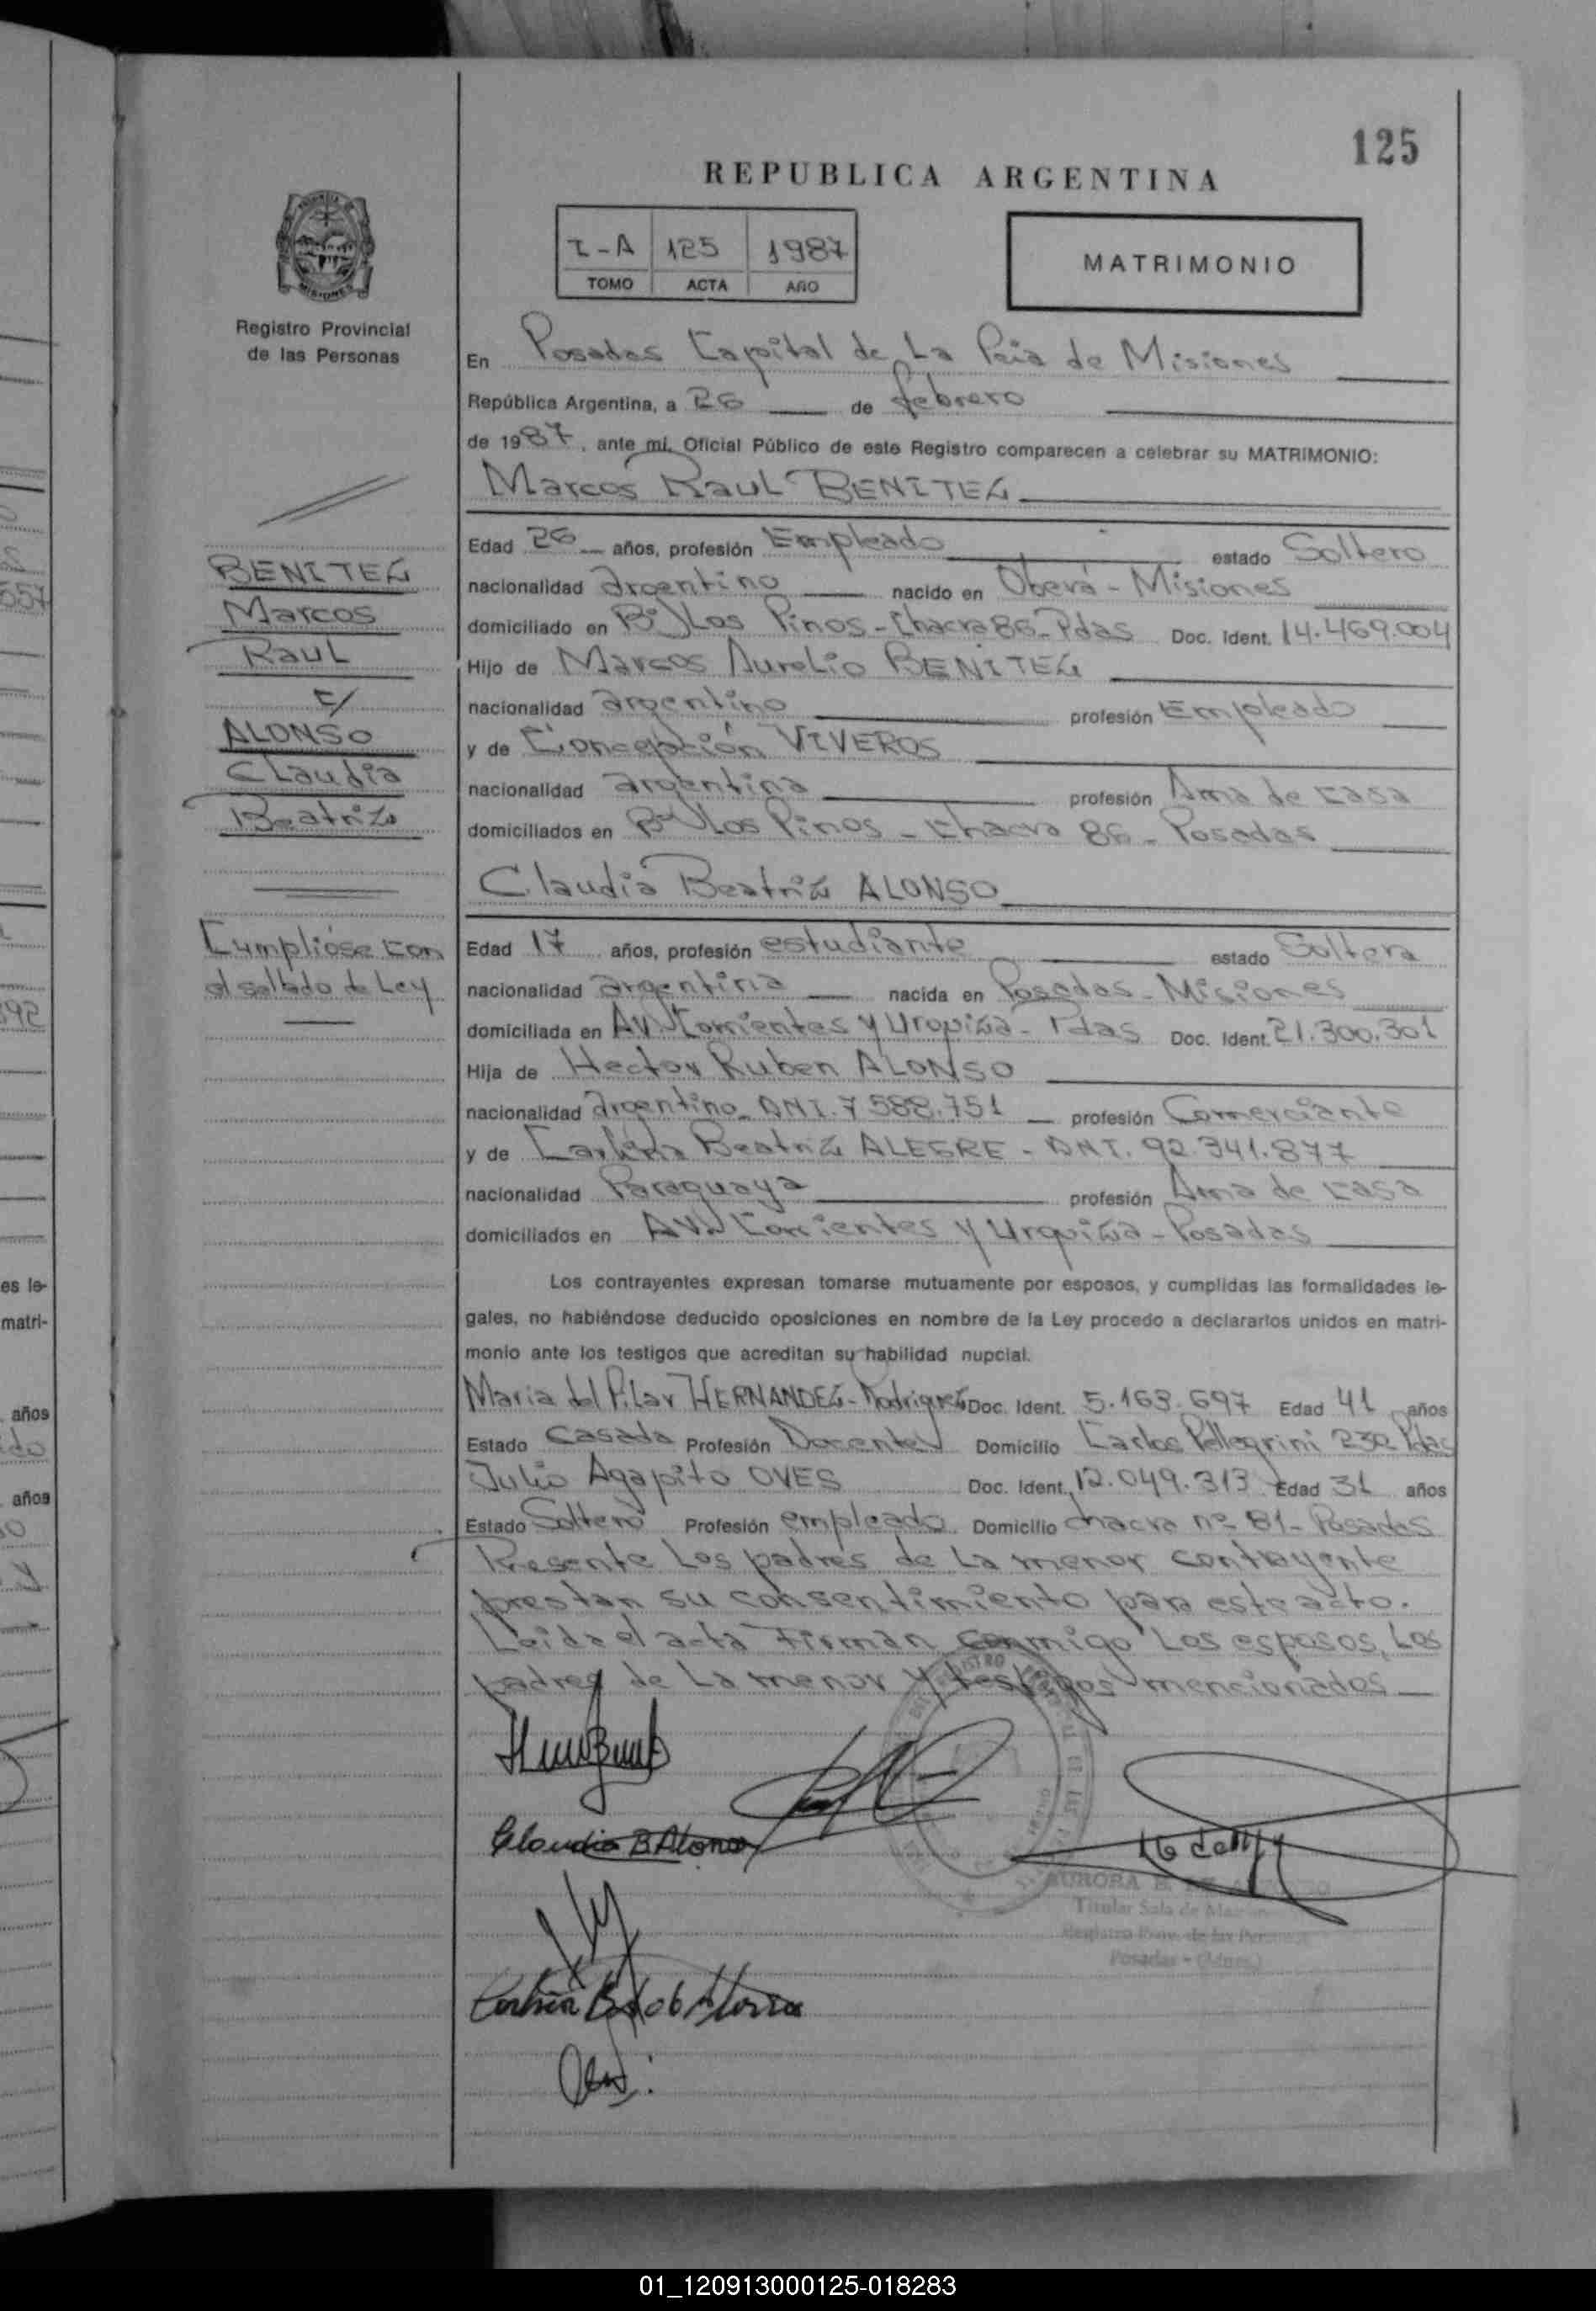 125
REPUBLICA ARGENTINA
I-A 125 1987
TOMO ACTA AÑO
MATRIMONIO
MISIONES
Registro Provincial
de las Personas
En Posadas Capital de La Pcia de Misiones
República Argentina, a 26 de febrero
de 1987, ante mí, Oficial Público de este Registro comparecen a celebrar su MATRIMONIO:
Marcos Raul BENITEZ
Edad 26 años, profesión Empleado estado Soltero
nacionalidad argentino nacido en Oberá - Misiones
domiciliado en Bº Los Pinos - Chacra 86 - Pdas Doc. Ident. 14.469.004
Hijo de Marcos Aurelio BENITEZ
nacionalidad argentino profesión Empleado
y de Concepción VIVEROS
nacionalidad argentina profesión Ama de casa
domiciliados en Bº Los Pinos - Chacra 86 - Posadas
Claudia Beatriz ALONSO
Edad 17 años, profesión estudiante estado Soltera
nacionalidad argentina nacida en Posadas - Misiones
domiciliada en Av. Corrientes y Urquiza - Pdas Doc. Ident. 21.300.301
Hija de Hector Ruben ALONSO
nacionalidad argentino - DNI. 7.588.751 profesión Comerciante
y de Beatriz ALEGRE - DNI. 92.341.877
nacionalidad Paraguaya profesión Ama de casa
domiciliados en Av. Corrientes y Urquiza - Posadas
Los contrayentes expresan tomarse mutuamente por esposos, y cumplidas las formalidades le-
gales, no habiéndose deducido oposiciones en nombre de la Ley procedo a declararlos unidos en matri-
monio ante los testigos que acreditan su habilidad nupcial.
Maria del Pilar HERNANDEZ - Rodriguez Doc. Ident. 5.163.697 Edad 41 años
Estado Casada Profesión Docente Domicilio Carlos Pellegrini 230 Pdas
Julio Agapito OVES Doc. Ident. 12.049.313 Edad 31 años
Estado Soltero Profesión empleado Domicilio chacra nº 81 - Posadas
Presente Los padres de La menor contrayente
prestan su consentimiento para este acto.
Leida el acta Firman conmigo Los esposos, Los
padres de La menor y testigos mencionados
BENITEZ
Marcos
Raul
c/
ALONSO
Claudia
Beatriz
Cumplióse con
el sellado de Ley
Claudia B Alonso
AURORA
Titular Sala de
Registro Prov. de las
Posadas - (Mnes.)
es le-
matri-
años
años
01_120913000125-018283